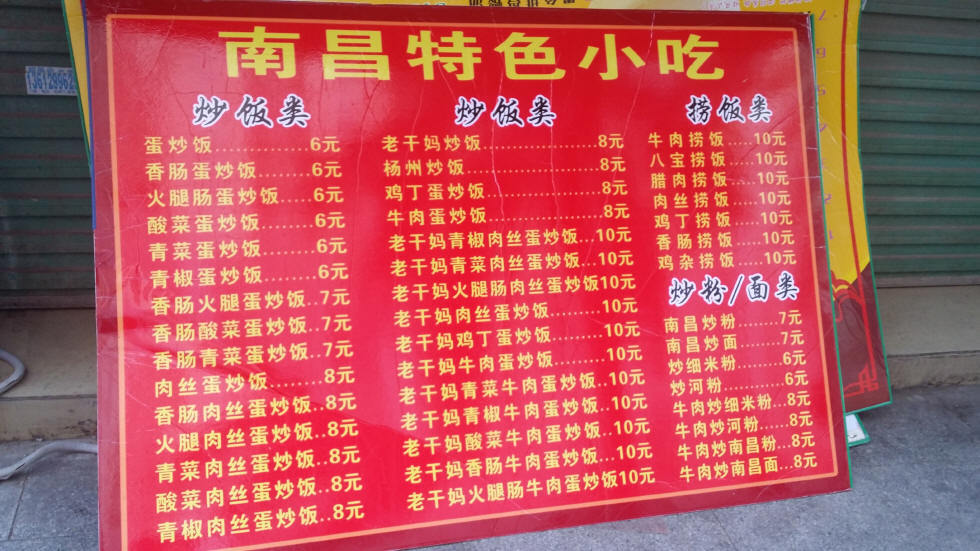 南昌特色小吃
炒饭类
蛋炒饭............6元
香肠蛋炒饭.......6元
火腿肠蛋炒饭.....6元
酸菜蛋炒饭.......6元
青菜蛋炒饭.......6元
青椒蛋炒饭.......6元
香肠火腿蛋炒饭..7元
香肠酸菜蛋炒饭..7元
香肠青菜蛋炒饭..7元
肉丝蛋炒饭.......8元
香肠肉丝蛋炒饭..8元
火腿肉丝蛋炒饭..8元
青菜肉丝蛋炒饭..8元
酸菜肉丝蛋炒饭..8元
青椒肉丝蛋炒饭..8元
炒饭类
老干妈炒饭.................8元
杨州炒饭...................8元
鸡丁蛋炒饭.................8元
牛肉蛋炒饭.................8元
老干妈青椒肉丝蛋炒饭...10元
老干妈青菜肉丝蛋炒饭...10元
老干妈火腿肠肉丝蛋炒饭10元
老干妈肉丝蛋炒饭........10元
老干妈鸡丁蛋炒饭........10元
老干妈牛肉蛋炒饭........10元
老干妈青菜牛肉蛋炒饭..10元
老干妈青椒牛肉蛋炒饭..10元
老干妈酸菜牛肉蛋炒饭..10元
老干妈香肠牛肉蛋炒饭...10元
老干妈火腿肠牛肉蛋炒饭10元
捞饭类
牛肉捞饭.....10元
八宝捞饭.....10元
腊肉捞饭.....10元
肉丝捞饭.....10元
鸡丁捞饭.....10元
香肠捞饭.....10元
鸡杂捞饭.....10元
炒粉/面类
南昌炒粉........7元
南昌炒面........7元
炒细米粉........6元
炒河粉...........6元
牛肉炒细米粉...8元
牛肉炒河粉......8元
牛肉炒南昌粉...8元
牛肉炒南昌面...8元